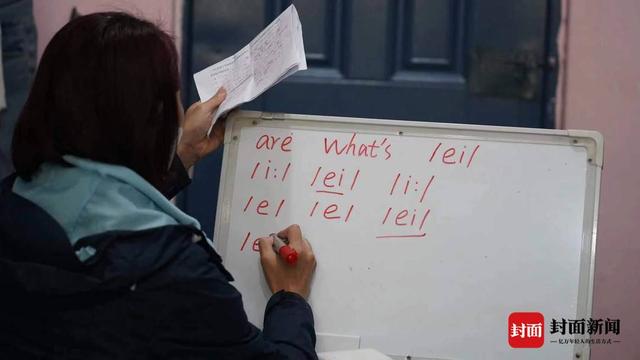 are what's /ei/
/i:/ /ei/ /i:/
/e/ /e/ /ei/
/e
封面 封面新闻
亿万年轻人的生活方式